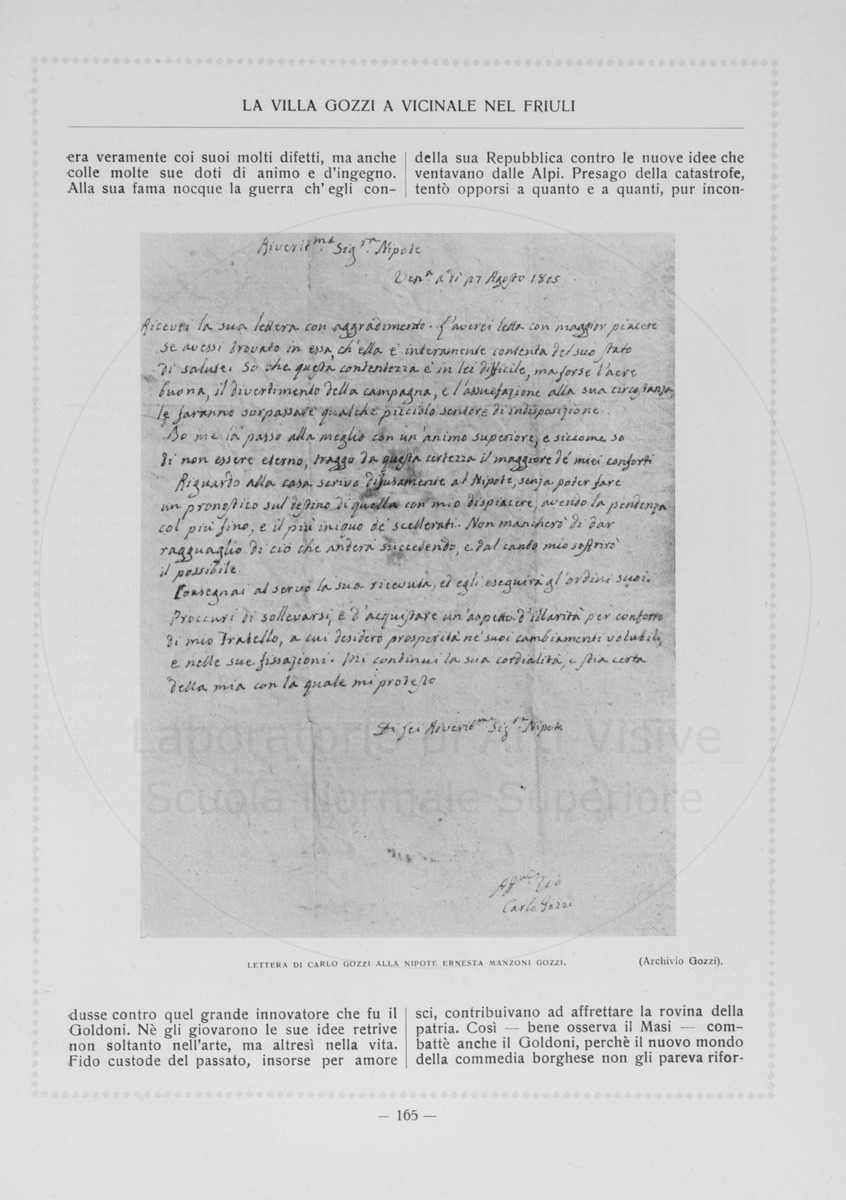 LA VILLA GOZZI A VICINALE NEL FRIULI
era veramente coi suoi molti difetti, ma anche
colle molte sue doti di animo e d'ingegno.
Alla sua fama nocque la guerra ch'egli con-
Riverit.ma Sig.ra Nipote
Ven.a a dì 27 Agosto 1805
Ricevei la sua lettera con aggradimento. L'averei letta con maggior piacere
se avessi trovato in essa, ch'ella è interamente contenta del suo stato
di salute. So che questa contentezza è in lei difficile, ma forse l'aere
buona, il divertimento della campagna, e l'assuefazione alla sua circostanza,
le faranno sorpassare qualche picciolo sentore di indisposizione.
Io me la passo alla meglio con un'animo superiore, e siccome so
di non essere eterno, traggo da questa certezza il maggiore de' miei conforti
Riguardo alla casa scrivo difusamente al Nipote, senza poter fare
un pronostico sul destino di quella con mio dispiacere, avendo la pendenza
col più fino, e il più iniquo de' scellerati. Non mancherò di dar
ragguaglio di ciò che anderà succedendo, e dal canto mio soffrirò
il possibile.
Consegnai al servo la sua ricevuta, ed egli eseguirà gl'ordini suoi.
Proccuri di sollevarsi, e d'acquistare un'aspetto d'illarità per conforto
di mio Fratello, a cui desidero prosperità ne' suoi cambiamenti volubili,
e nelle sue fissazioni. Mi continui la sua cordialità, e stia certa
della mia con la quale mi protesto
Di Lei Riverit.ma Sig.ra Nipote
Aff.mo Zio
Carlo Gozzi
LETTERA DI CARLO GOZZI ALLA NIPOTE ERNESTA MANZONI GOZZI.
(Archivio Gozzi).
dusse contro quel grande innovatore che fu il
Goldoni. Nè gli giovarono le sue idee retrive
non soltanto nell'arte, ma altresì nella vita.
Fido custode del passato, insorse per amore
della sua Repubblica contro le nuove idee che
ventavano dalle Alpi. Presago della catastrofe,
tentò opporsi a quanto e a quanti, pur incon-
sci, contribuivano ad affrettare la rovina della
patria. Così — bene osserva il Masi — com-
battè anche il Goldoni, perchè il nuovo mondo
della commedia borghese non gli pareva rifor-
— 165 —
Laboratorio di Arti Visive
Scuola Normale Superiore